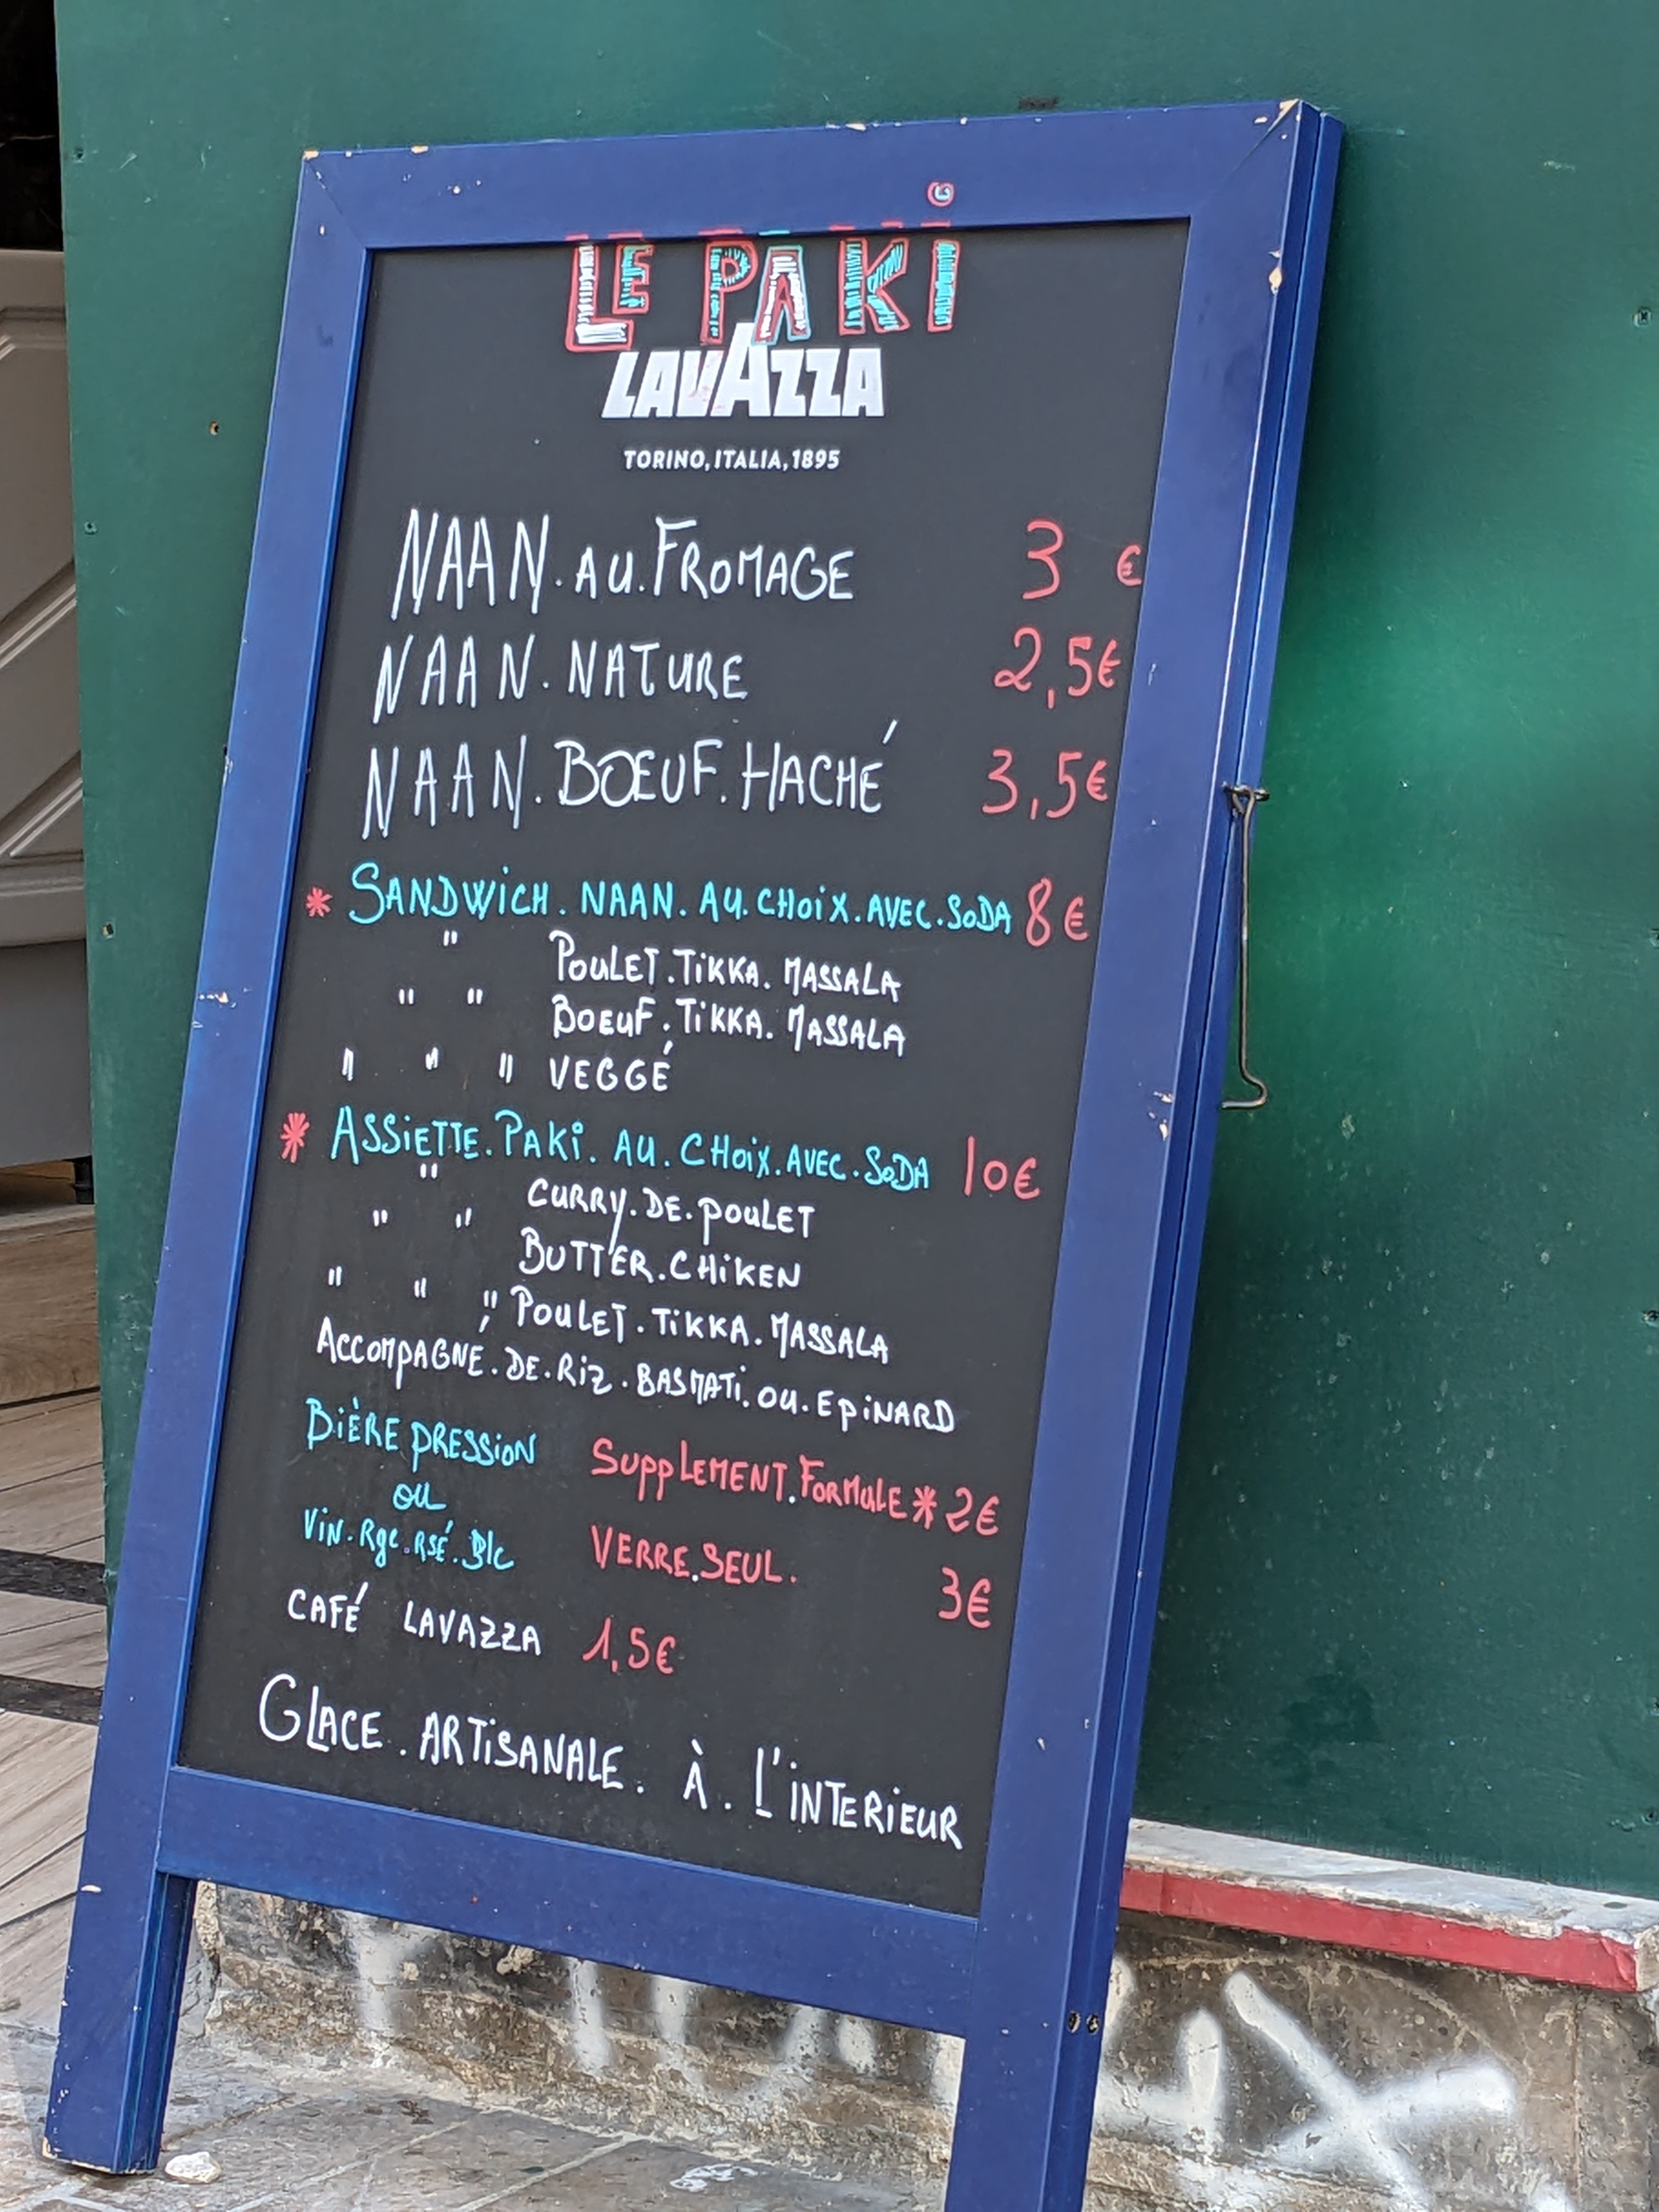 LE PAKi
LAVAZZA
TORINO, ITALIA, 1895
NAAN.AU.FROMAGE 3 €
NAAN.NATURE 2,5€
NAAN.BŒUF.HACHÉ 3,5€
* SANDWiCH.NAAN.AU.CHOiX.AVEC.SODA 8€
" POULET.TiKKA.MASSALA
" " BOEUF.TiKKA.MASSALA
" " " VEGGÉ
* ASSiETTE.PAKi.AU.CHOiX.AVEC.SODA 10€
" CURRY.DE.POULET
" " BUTTER.CHiKEN
" " " POULET.TiKKA.MASSALA
ACCOMPAGNÉ.DE.RiZ.BASMATi.OU.EPiNARD
BiÈRE PRESSiON SUPPLEMENT.FORMULE * 2€
OU
ViN.Rge.RSÉ.Blc VERRE.SEUL. 3€
CAFÉ LAVAZZA 1,5€
GLACE.ARTiSANALE. À. L'iNTERiEUR